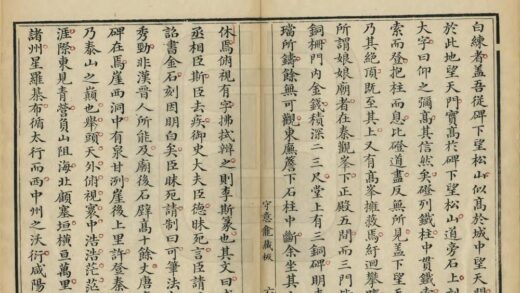 白練者蓋吾從碑下望松山似高於城中望天門
於此地望天門實高於碑下望松山道旁石上刻
大字曰仰之彌高其信然矣磴列鐵柱中貫鐵
索而登抱柱而息比磴道盡反無所見蓋下望
乃其絕頂既至其上又有高峯擁蔽焉紆迴攀
所謂娘娘廟者在秦觀峯下正殿五間而三門
銅柵門內金錢積深二三尺堂上有三銅碑明
璫所鑄餘無可觀東廡簷下石柱中斷余坐其
守意龕藏板 六
休焉俯視有字拂拭辨之則李斯篆也其文曰
丞相臣斯臣去疾御史大夫臣德昧死言臣請
詔書金石刻因明白矣臣昧死請制曰可筆法
秀動非漢晉人所能及廟後石壁高十餘丈唐
碑在焉崖西洞中有泉甘冽崖後上里許登秦
乃泰山之巔也舉頭天外俯視寰中浩浩茫茫
涯際東見青營負山阻海北顧塞垣橫亘萬里
諸州星羅棊布循太行而西中州之沃衍咸陽